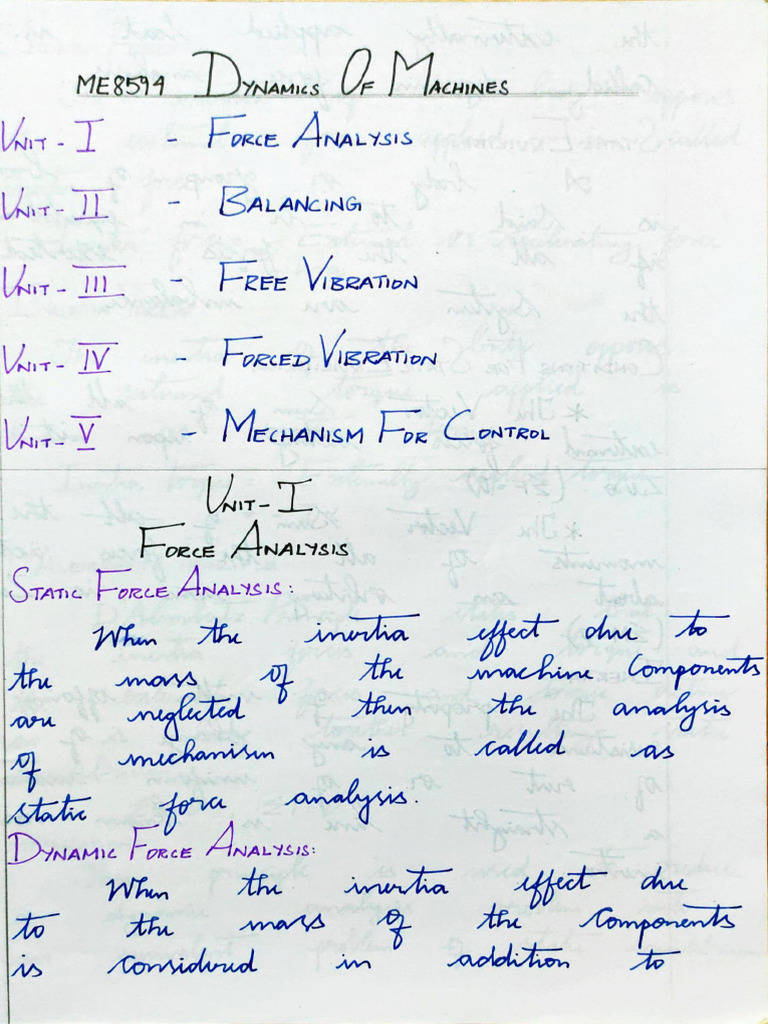 ME8594 DYNAMICS OF MACHINES
UNIT - I - FORCE ANALYSIS
UNIT - II - BALANCING
UNIT - III - FREE VIBRATION
UNIT - IV - FORCED VIBRATION
UNIT - V - MECHANISM FOR CONTROL
UNIT - I
FORCE ANALYSIS
STATIC FORCE ANALYSIS:
When the inertia effect due to
the mass of the machine Components
are neglected then the analysis
of mechanism is called as
static force analysis.
DYNAMIC FORCE ANALYSIS:
When the inertia effect due
to the mass of the Components
is considered in addition to